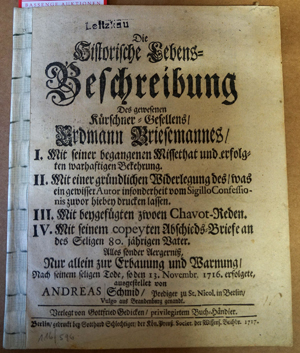 BASSENGE AUKTIONEN
Leitzkau
Die
Historische Lebens-
Beschreibung
Des gewesenen
Kürschner-Gesellens/
Erdmann Briesemannes/
I. Mit seiner begangenen Missethat und erfolg-
ten warhafftigen Bekehrung.
II. Mit einer gründlichen Widerlegung des/was
ein gewisser Autor insonderheit vom Sigillo Confessio-
nis zuvor hieben drucken lassen.
III. Mit beygefügten zwoen Chavot-Reden.
IV. Mit seinem copeyten Abschieds-Briefe an
des Seligen 80. jährigen Vater.
Alles sonder Aergerniß,
Nur allein zur Erbauung und Warnung/
Nach seinem seligen Tode, so den 13. Novembr. 1716. erfolgete,
ausgestellet von
ANDREAS Schmid/ Prediger zu St. Nicol. in Berlin/
Vulgo aus Brandenburg genandt.
Verlegts Gottfried Gedicken/ privilegirten Buch-Händler.
Berlin/ gedruckt bey Gotthard Schlechtiger/ der Kön. Preuß. Societ. der Wissens. Buchdr. 1717.